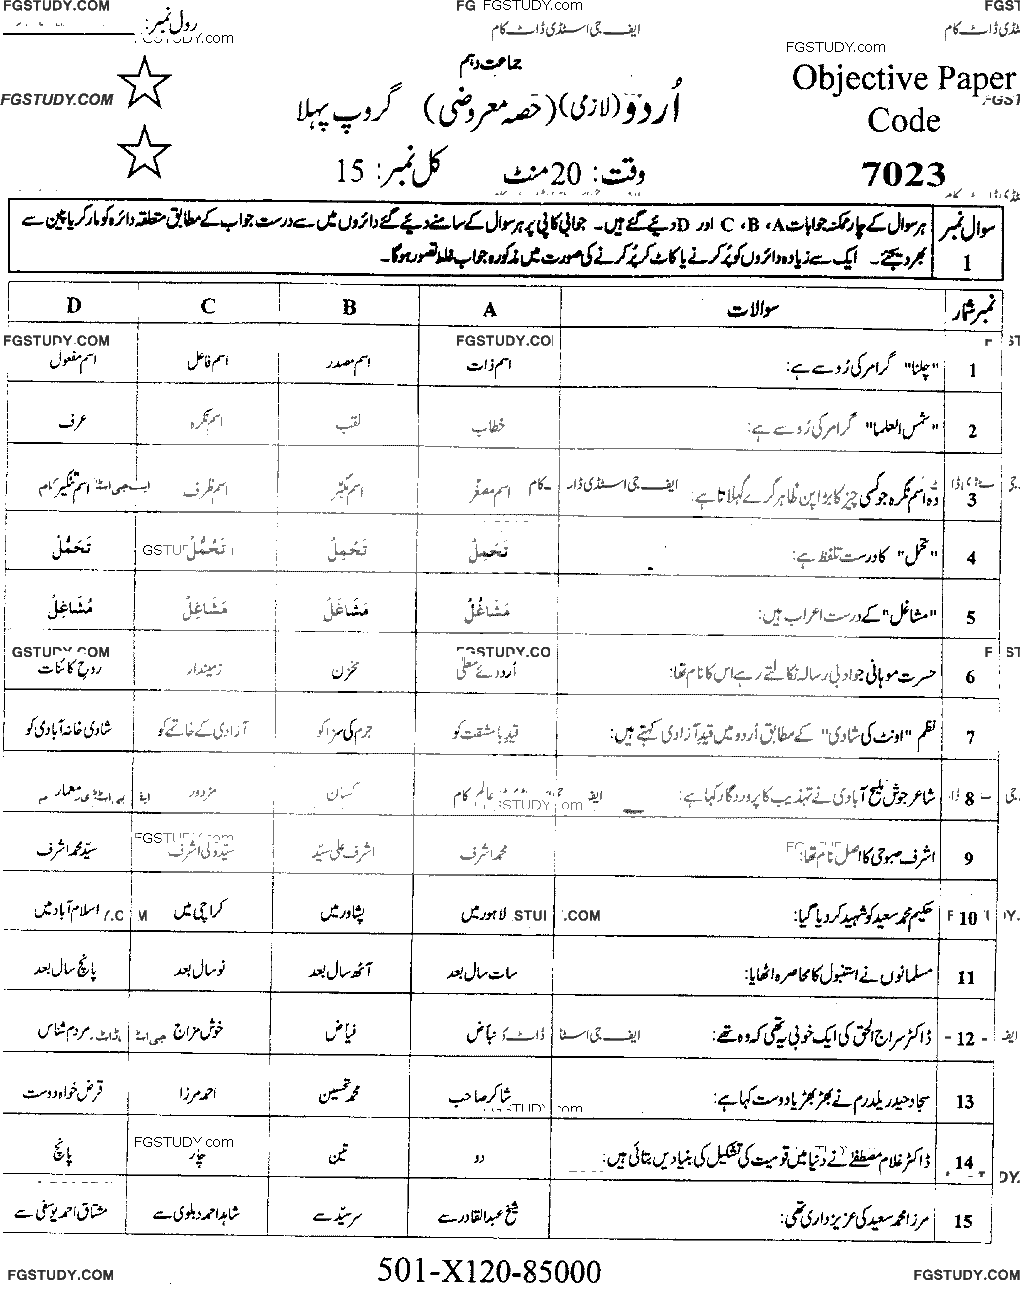 FGSTUDY.COM
FG FGSTUDY.com
FGST
رول نمبر:
FGSTUDY.com
ایف جی اسٹڈی ڈاٹ کام
ٹڈی ڈاٹ کام
FGSTUDY.com
جماعت دہم
Objective Paper
FGSTUDY.COM
اُردو (لازمی) (حصہ معروضی) گروپ پہلا
Code
وقت: 20 منٹ کل نمبر: 15
7023
سوال نمبر 1
ہر سوال کے چار ممکنہ جوابات A، B، C اور D دیئے گئے ہیں۔ جوابی کاپی پر ہر سوال کے سامنے دیئے گئے دائروں میں سے درست جواب کے مطابق متعلقہ دائرہ کو مارکر یا پین سے
بھر دیجئے۔ ایک سے زیادہ دائروں کو پُر کرنے یا کاٹ کر پُر کرنے کی صورت میں مذکورہ جواب غلط تصور ہوگا۔
نمبر شمار سوالات A B C D
FGSTUDY.COM
1 "چلنا" گرامر کی رُو سے ہے: اسم ذات اسم مصدر اسم فاعل اسم مفعول
2 "شمس العلما" گرامر کی رُو سے ہے: خطاب لقب اسم نکرہ عرف
3 وہ اسم نکرہ جو کسی چیز کا بڑا پن ظاہر کرے کہلاتا ہے: اسم مصغّر اسم مکبّر اسم ظرف اسم تنکیر
4 "تحمل" کا درست تلفظ ہے: تَحَمِلْ تَحْمِلْ تَحُمُّلْ تَحَمُّلْ
5 "مشاغل" کے درست اعراب ہیں: مَشَاغُلْ مَشَاغَلْ مَشَاغِلْ مُشَاغِلْ
FGSTUDY.COM
6 حسرت موہانی جو ادبی رسالہ نکالتے رہے اس کا نام تھا: اُردوئے معلیٰ مخزن زمیندار روحِ کائنات
7 نظم "اونٹ کی شادی" کے مطابق اُردو میں قیدِ آزادی کہتے ہیں: قیدِ با مشقت کو جرم کی سزا کو آزادی کے خاتمے کو شادی خانہ آبادی کو
8 شاعر جوش ملیح آبادی نے تہذیب کا پروردگار کہا ہے: عالم کسان مزدور معمار
9 اشرف صبوحی کا اصل نام تھا: محمد اشرف اشرف علی سیّد سیّد ولی اشرف سیّد محمد اشرف
FGSTUDY.com
10 حکیم محمد سعید کو شہید کر دیا گیا: لاہور میں پشاور میں کراچی میں اسلام آباد میں
11 مسلمانوں نے استنبول کا محاصرہ اٹھایا: سات سال بعد آٹھ سال بعد نو سال بعد پانچ سال بعد
12 ڈاکٹر سراج الحق کی ایک خوبی یہ تھی کہ وہ تھے: نباض فیاض خوش مزاج مردم شناس
13 سجاد حیدر یلدرم نے بھڑ بھڑیا دوست کہا ہے: شاکر صاحب محمد تحسین احمد مرزا قرض خواہ دوست
FGSTUDY.com
14 ڈاکٹر غلام مصطفےٰ نے دُنیا میں قومیت کی تشکیل کی بنیادیں بتائی ہیں: دو تین چار پانچ
15 مرزا محمد سعید کی عزیز داری تھی: شیخ عبدالقادر سے سر سیّد سے شاہد احمد دہلوی سے مشتاق احمد یوسفی سے
501-X120-85000
FGSTUDY.COM
FGSTUDY.COM